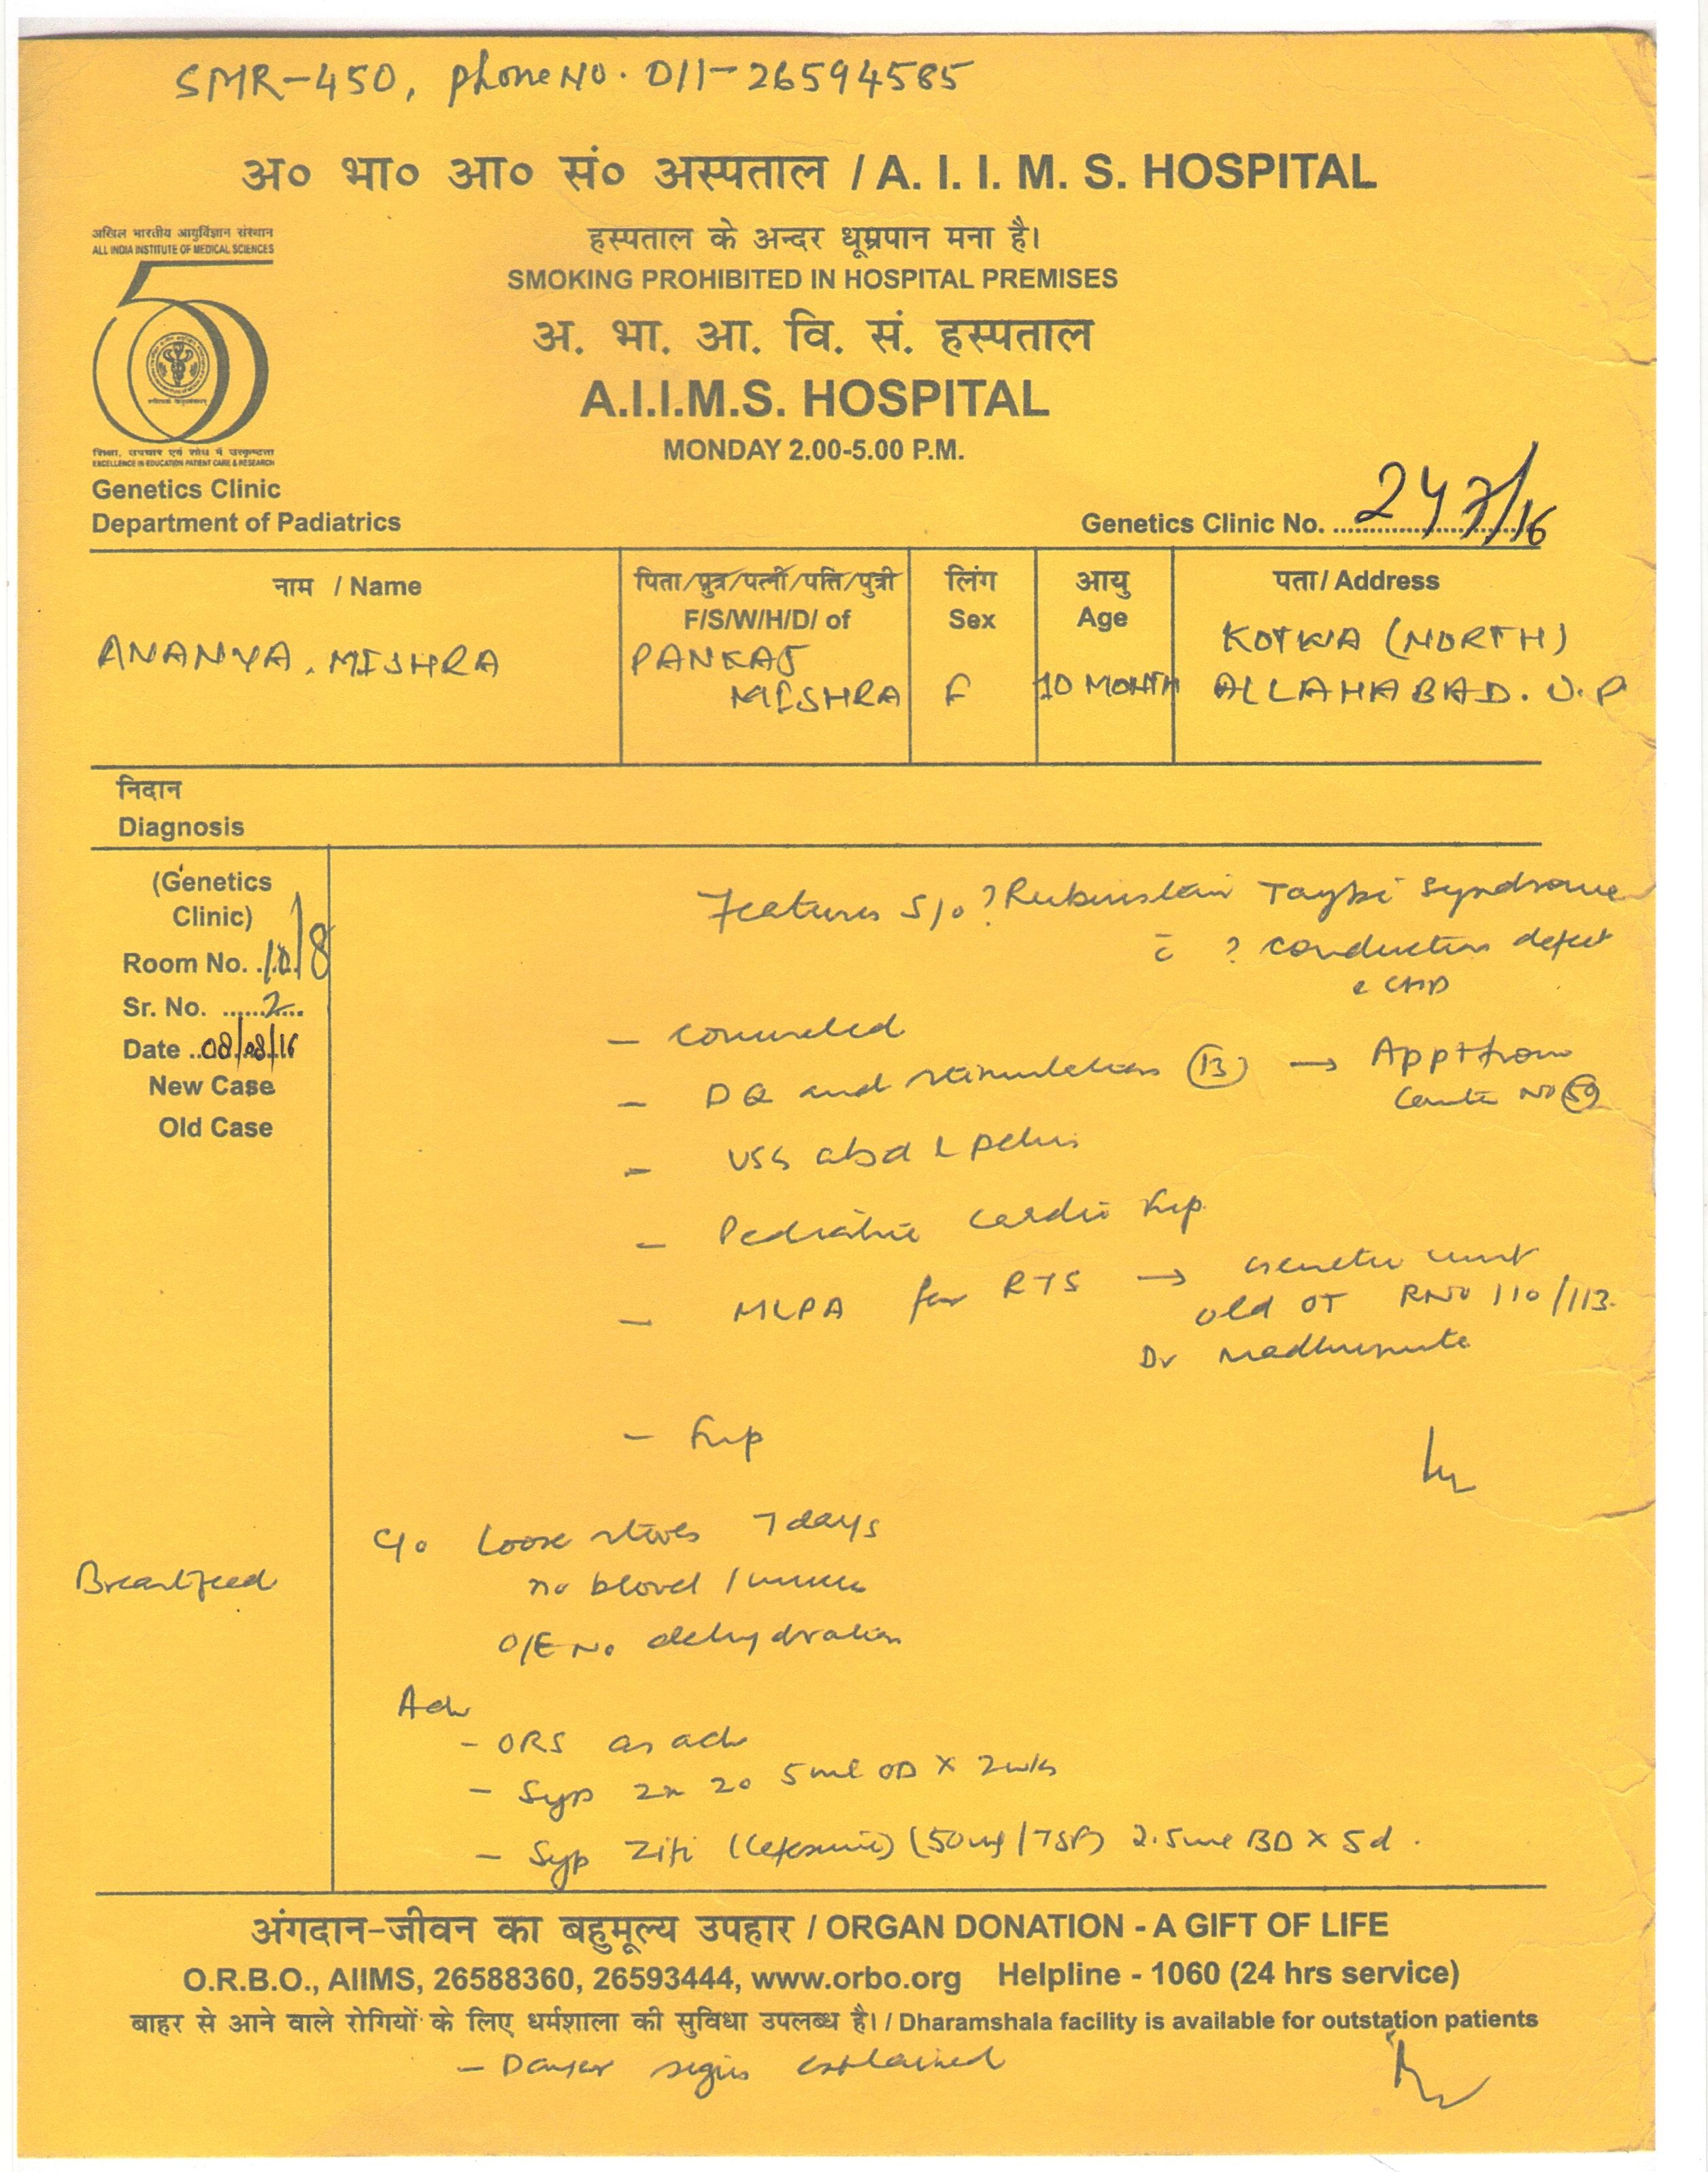 SMR-450, phone NO. 011-26594585
अ० भा० आ० सं० अस्पताल / A. I. I. M. S. HOSPITAL
अखिल भारतीय आयुर्विज्ञान संस्थान
ALL INDIA INSTITUTE OF MEDICAL SCIENCES
हस्पताल के अन्दर धूम्रपान मना है।
SMOKING PROHIBITED IN HOSPITAL PREMISES
अ. भा. आ. वि. सं. हस्पताल
A.I.I.M.S. HOSPITAL
MONDAY 2.00-5.00 P.M.
शिक्षा, उपचार एवं शोध में उत्कृष्टता
EXCELLENCE IN EDUCATION PATIENT CARE & RESEARCH
Genetics Clinic
Department of Padiatrics
Genetics Clinic No. 247/16
नाम / Name
पिता/पुत्र/पत्नी/पति/पुत्री
F/S/W/H/D/ of
लिंग
Sex
आयु
Age
पता / Address
ANANYA. MISHRA
PANKAJ
MISHRA
F
10 MONTH
KOTWA (NORTH)
ALLAHABAD. U.P
निदान
Diagnosis
(Genetics
Clinic)
Room No.
Sr. No. 2
Date 08/08/16
New Case
Old Case
Features S/o ? Rubinstein Taybi Syndrome
c̄ ? conduction defect
c CHD
- counseled
- DQ and stimulation (13) → Appt from
Counter No (59)
- USG abd & pelvis
- Pediatric cardio f/up
- MLPA for RTS → Genetic unit
old OT RNo 110/113.
Dr Madhumita
- f/up
C/o Loose stools 7 days
no blood / mucus
Breastfeed
O/E No dehydration
Adv
- ORS as adv
- Syp Zn 20 5ml OD x 2wks
- Syp Zifi (Cefixime) (50mg/TSP) 2.5ml BD x 5d.
अंगदान-जीवन का बहुमूल्य उपहार / ORGAN DONATION - A GIFT OF LIFE
O.R.B.O., AIIMS, 26588360, 26593444, www.orbo.org Helpline - 1060 (24 hrs service)
बाहर से आने वाले रोगियों के लिए धर्मशाला की सुविधा उपलब्ध है। / Dharamshala facility is available for outstation patients
- Danger signs explained